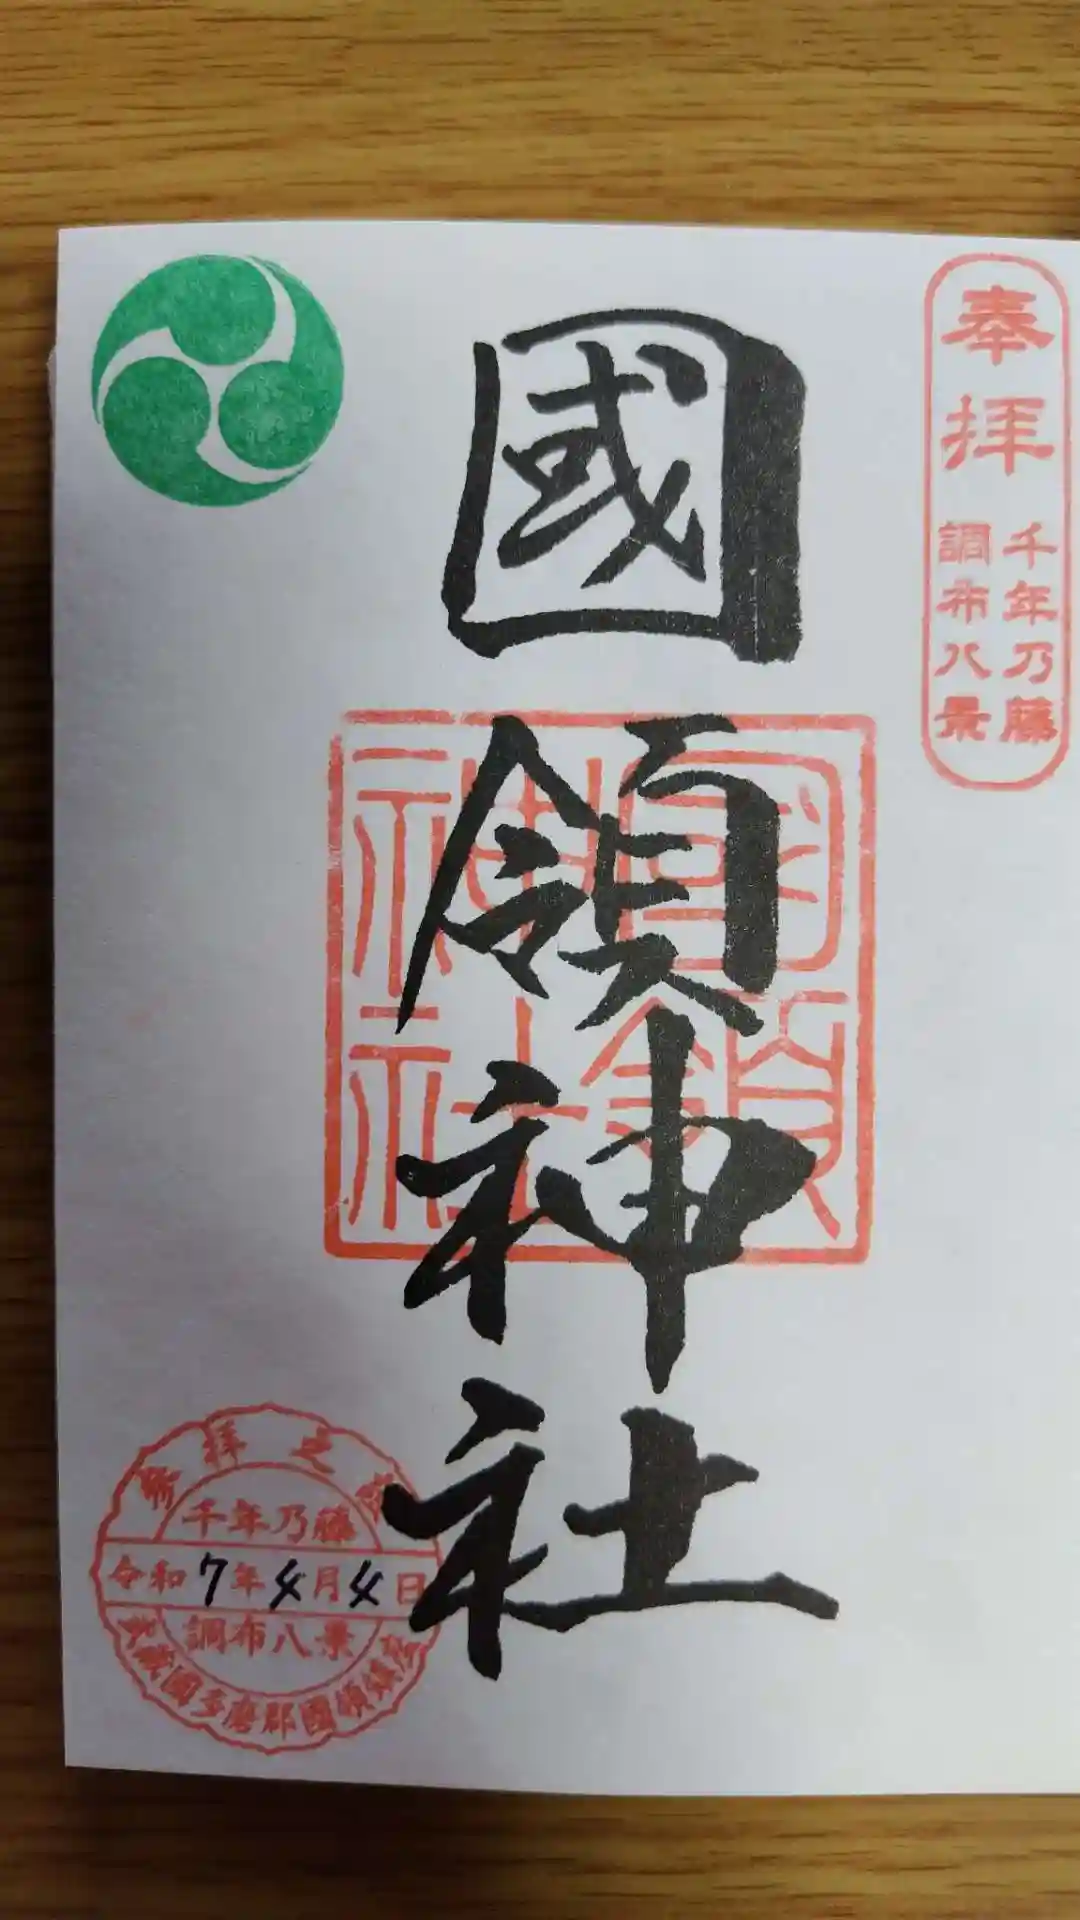 奉拝
千年乃藤
調布八景
國領神社
國領
神社
参拝之
千年乃藤
令和7年4月4日
調布八景
武蔵國多磨郡國領鎮座